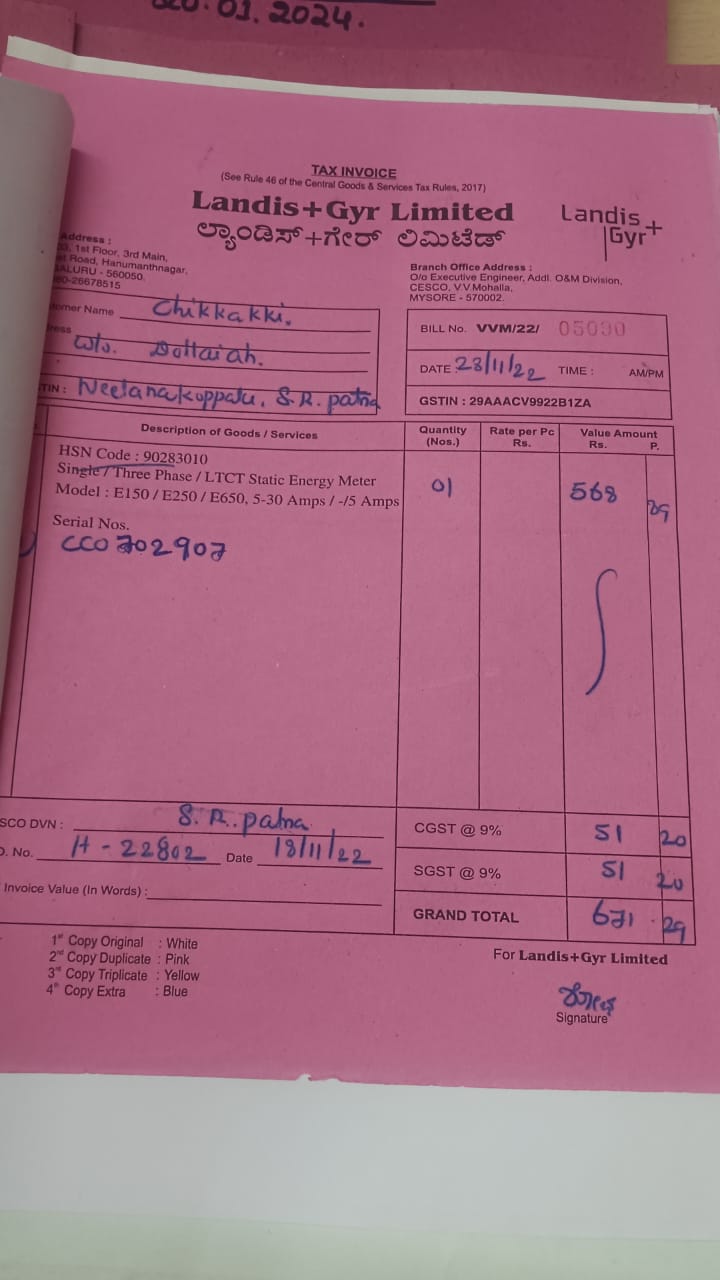 01.2024.
TAX INVOICE
(See Rule 46 of the Central Goods & Services Tax Rules, 2017)
Landis+Gyr Limited
ಲ್ಯಾಂಡಿಸ್+ಗೇರ್ ಲಿಮಿಟೆಡ್
Landis+
Gyr
Address :
1st Floor, 3rd Main,
Road, Hanumanthnagar,
ALURU - 560050.
80-26678515
Branch Office Address :
O/o Executive Engineer, Addl. O&M Division,
CESCO, V.V.Mohalla,
MYSORE - 570002.
omer Name Chikkakki.
ress W/o. Dottaiah.
TIN : Neelanakoppalu, S.R. patna
BILL No. VVM/22/ 05090
DATE : 23/11/22 TIME : AM/PM
GSTIN : 29AAACV9922B1ZA
Description of Goods / Services Quantity (Nos.) Rate per Pc Rs. Value Amount Rs. P.
HSN Code : 90283010
Single / Three Phase / LTCT Static Energy Meter
Model : E150 / E250 / E650, 5-30 Amps / -/5 Amps 01 568 29
Serial Nos.
CC0702907
SCO DVN : S. R. patna
CGST @ 9% 51 20
. No. H-22802 Date 18/11/22
SGST @ 9% 51 20
Invoice Value (In Words) :
GRAND TOTAL 671.29
1st Copy Original : White
2nd Copy Duplicate : Pink
3rd Copy Triplicate : Yellow
4th Copy Extra : Blue
For Landis+Gyr Limited
Signature